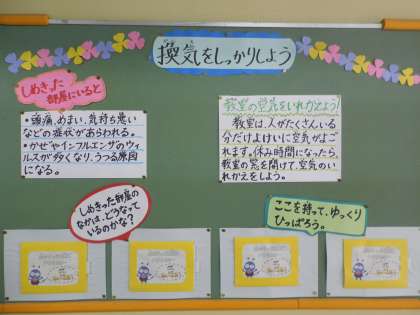 換気をしっかりしよう
しめきった
部屋にいると
・頭痛、めまい、気持ち悪い
などの症状があらわれる。
・かぜやインフルエンザのウイ
ルスが多くなり、うつる原因
になる。
教室の空気をいれかえよう!
教室は、人がたくさんいる
分だけよけいに空気がよご
れます。休み時間になったら、
教室の窓を開けて、空気のい
れかえをしよう。
しめきった部屋の
なかは、どうなって
いるのかな?
ここを持って、ゆっくり
ひっぱろう。